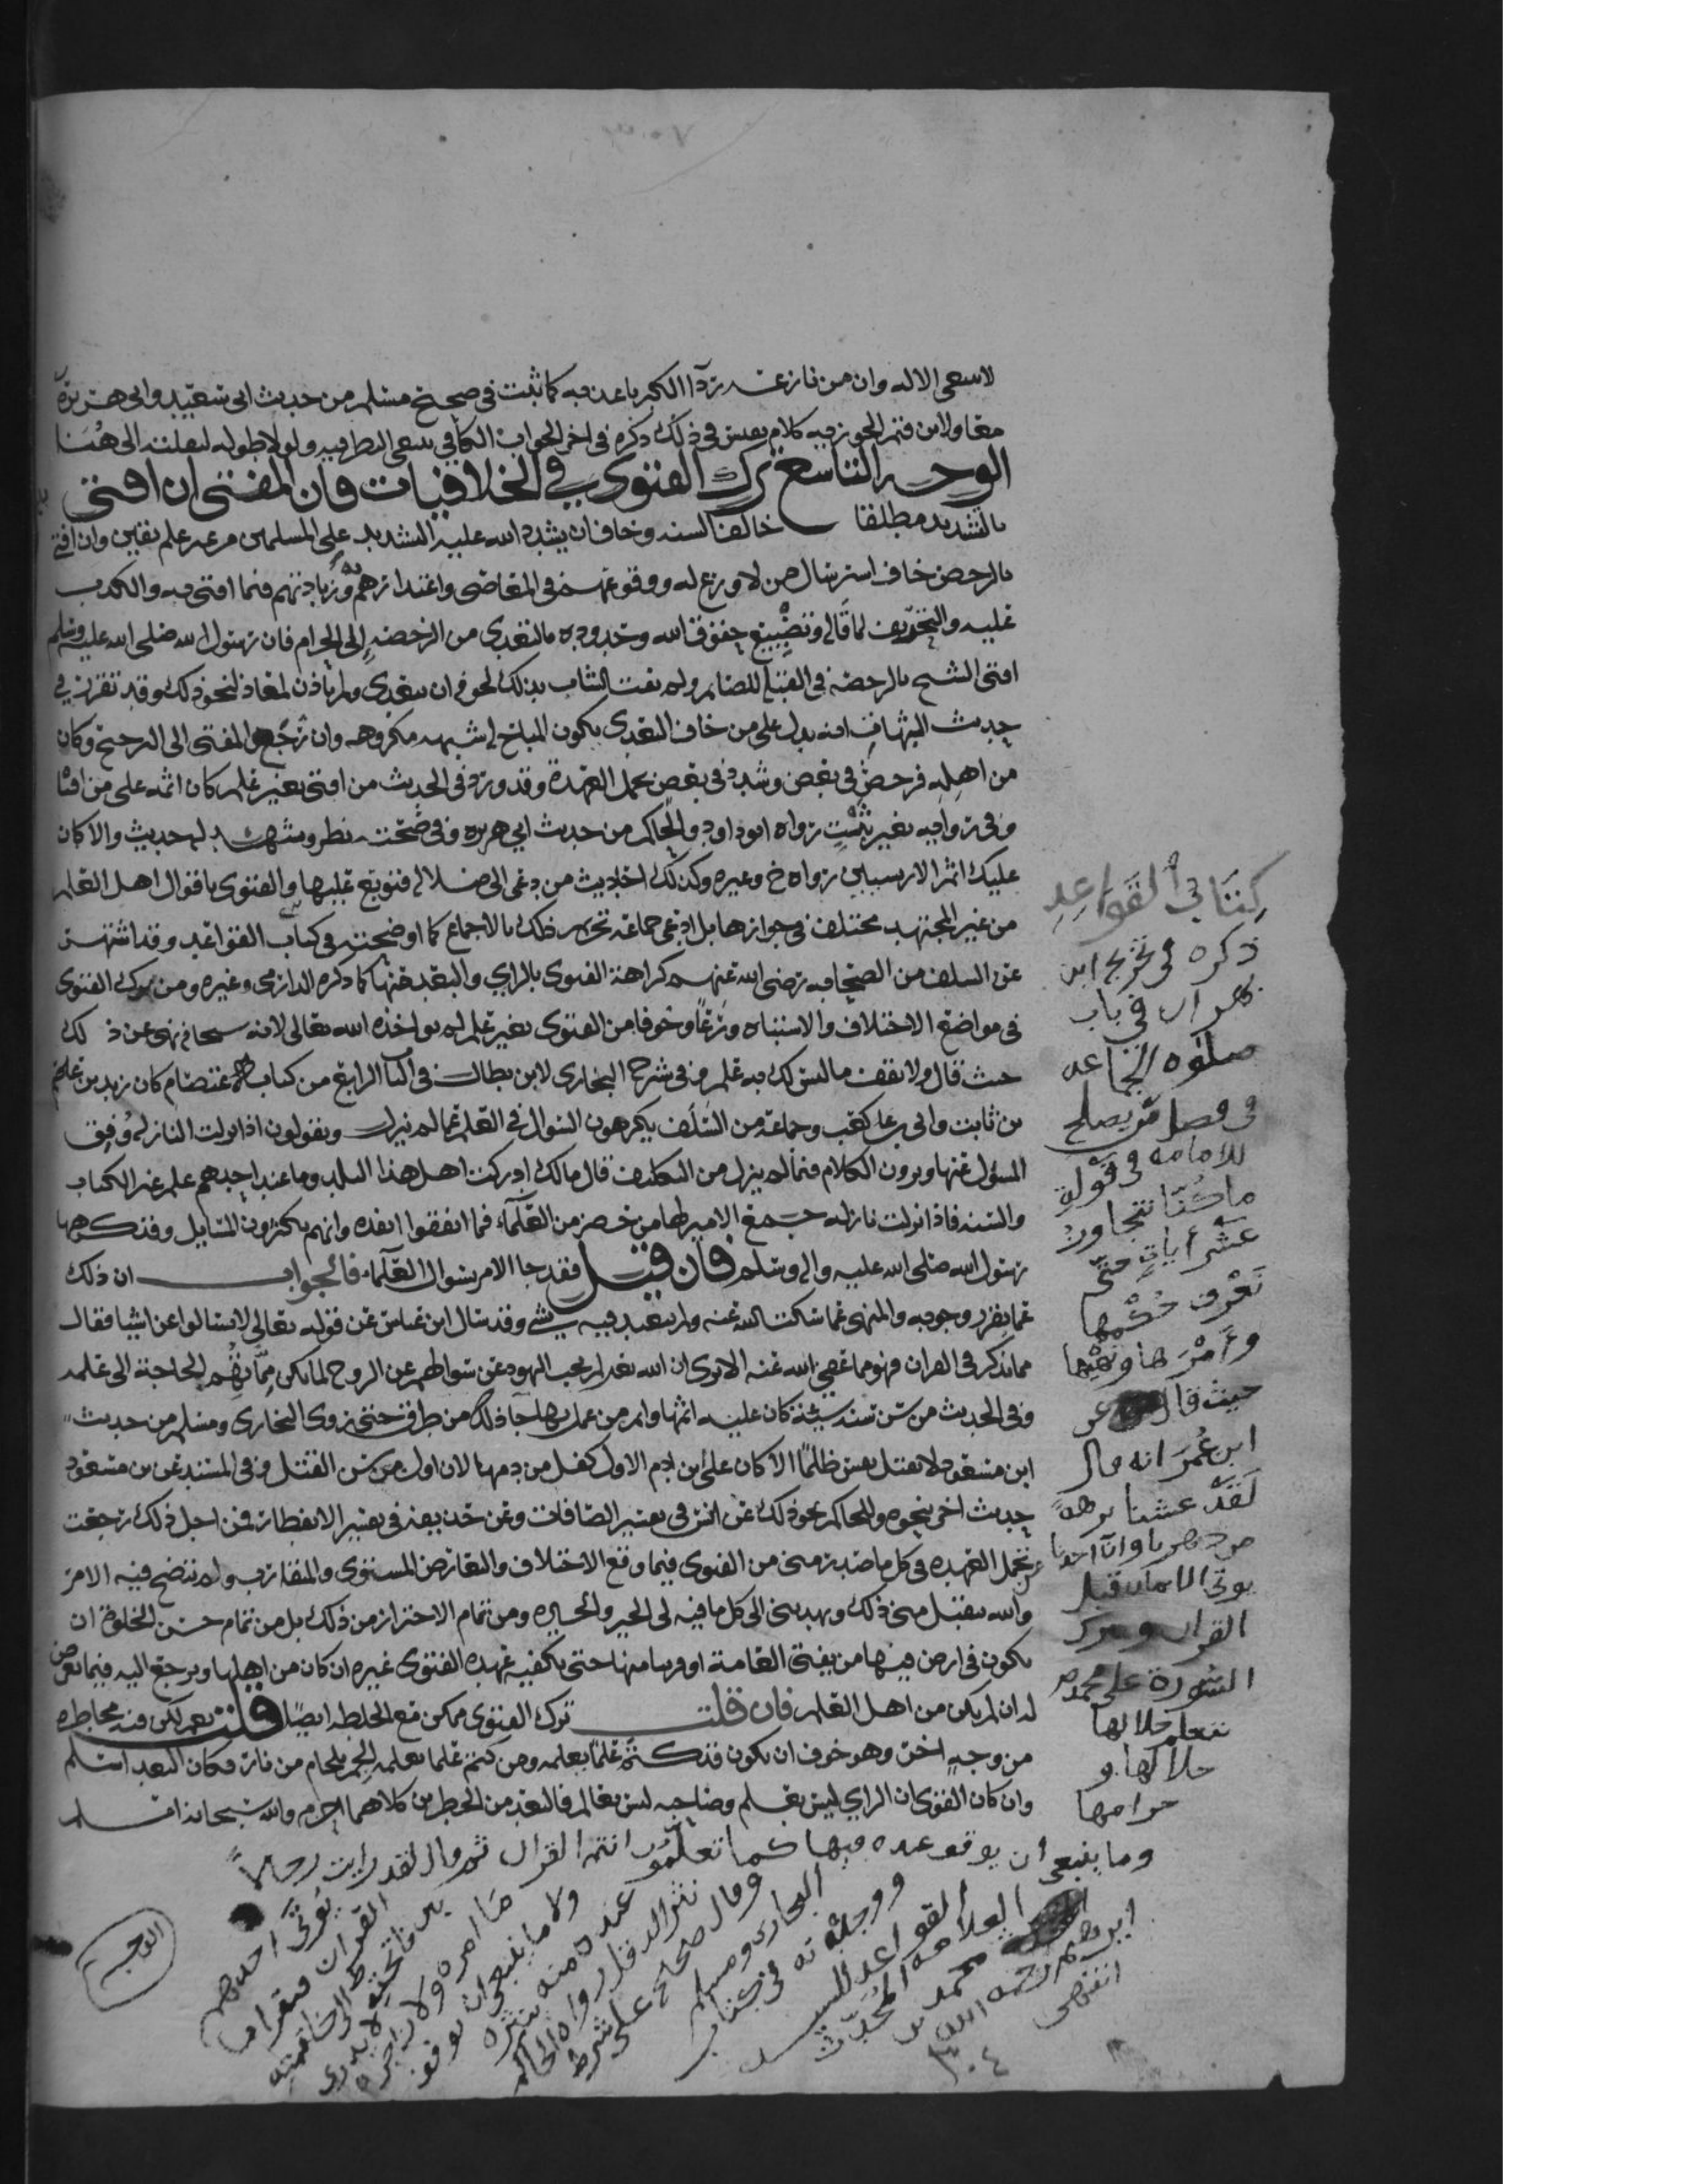 لا ينبغي الا له وان من نازعه ردآ الكبر باعده به كما ثبت في صحيح مسلم من حديث ابي سعيد وابي هريرة
معا ولابن قيم الجوزيه كلام نفيس في ذلك ذكره في اخر الجواب الكافي ينبغي النظر فيه ولولا طوله لنقلته الى هنا
الوجه التاسع ترك الفتوى في الخلافيات فان المفتي ان افتى
بالتشديد مطلقا خالف السنه وخاف ان يشدد الله عليه التشديد على المسلمين من غير علم يقين وان افتى
بالرخص خاف استرسال من لا ورع له ووقوعهم في المعاصي واغتدارهم وزيادتهم فيما افتى به والكذب
عليه والتحريف لما قال وتضييع حقوق الله وحدوده بالتعدي من الرخصه الى الحرام فان رسول الله صلى الله عليه وسلم
افتى الشيخ بالرخصه في القبله للصائم ولم يفت الشاب بذلك لخوف ان يتعدى ولم ياذن لمعاذ لنحو ذلك وقد تقرر في
حديث الشبهات انه يدل على من خاف التعدي يكون المباح له شبهه مكروهه وان رجع المفتي الى الترجيح وكان
من اهله فرخص في بعض وشدد في بعض تحمل العهدة وقد ورد في الحديث من افتى بغير علم كان اثمه على من افتا
وفي روايه بغير تثبت رواه ابو داود والحاكم من حديث ابي هريره وفي صحته نظر ويشهد له حديث والا كان
عليك اثم الاريسيين رواه خ وغيره وكذلك احاديث من دعى الى ضلاله فتوبع عليها والفتوى باقوال اهل العلم
من غير المجتهد مختلف في جوازها بل ادعى جماعة تحريم ذلك بالاجماع كما اوضحته في كتاب القواعد وقد اشتهر
عن السلف من الصحابه رضي الله عنهم كراهة الفتوى بالراي والبعد عنها كما ذكره الدارمي وغيره ومن ترك الفتوى
في مواضع الاختلاف والاشتباه ورعاً وخوفا من الفتوى بغير علم لم يواخذه الله تعالى لانه سبحانه نهى عن ذلك
حيث قال ولا تقف ما ليس لك به علم وفي شرح البخاري لابن بطال في الباب الرابع من كتاب الاعتصام كان زيد بن علم
بن ثابت وابي بن كعب وجماعة من السلف يكرهون السوال في العلم عما لم ينزل ويقولون اذا نزلت النازله وفق
المسؤل عنها ويرون الكلام فيما لم ينزل من التكليف قال مالك ادركت اهل هذا البلد وما عند احدهم علم غير الكتاب
والسنه فاذا نزلت نازله جمع الامير لها من حضر من العلمآء فما اتفقوا انفذه وانتم تكثرون المسايل وقد كرهها
رسول الله صلى الله عليه واله وسلم فان قيل فقد جا الامر بسوال العلمآء فالجواب ان ذلك
عما تقرر وجوبه والمنهي عما سكت الله عنه ولم يتعبد فيه بشي وقد سال ابن عباس عن قوله تعالى لا تسالوا عن اشيا فقال
مما لم يذكر في القران فهو مما عفى الله عنه الا ترى ان الله تعالى لم يجب اليهود عن سوالهم عن الروح لما لم يكن مما بهم الحاجة الى علمه
وفي الحديث من سن سنه سيئة كان عليه اثمها واثم من عمل بها جا ذلك من طرق حتى روى البخاري ومسلم من حديث
ابن مسعود لا تقتل نفس ظلماً الا كان على ابن ادم الاول كفل من دمها لانه اول من سن القتل وفي المسند عن بن مسعود
حديث اخر بنحوه وللحاكم نحو ذلك عن انس في تفسير الصافات وعن حذيفة في تفسير الانفطار فمن اجل ذلك رجعت
عن تحمل العهده في كل ما صدر مني من الفتوى فيما وقع الاختلاف والتعارض المستوى والمتقارب ولم يتضح فيه الامر
والله يتقبل مني ذلك ويهديني الى كل ما فيه لي الخير والخيره ومن تمام الاحتراز من ذلك بل من تمام حسن الخلوة ان
يكون في ارض فيها من يفتي العامة او قريبا منها حتى يكفيه عهده الفتوى غيره ان كان من اهلها ويرجع اليه فيما يعرض
له ان لم يكن من اهل العلم فان قلت ترك الفتوى ممكن مع الخلطه ايضا قلت نعم لكن فيه مخاطره
من وجه اخر وهو خوف ان يكون قد كتم علما يعلمه ومن كتم علما يعلمه الجم بلجام من نار فكان البعد اسلم
وان كان الفتوى ان الراي ليس بعلم وصاحبه ليس بعالم فالبعد من الخطرين كلاهما احزم والله سبحانه اعلم
كتابي القواعد
ذكره في تخريج ابن
بهران في باب
صلوه الجماعه
في فصل من يصلح
للامامه في قوله
ما كنا نتجاوز
عشر أيات حتى
نعرف حكمها
وأمرها ونهيها
حيث قال عن
ابن عمر انه قال
لقد عشنا برهة
من دهرنا وان احدنا
يوتى الايمان قبل
القران وتنزل
السورة على محمد ص
فنتعلم حلالها
حلالها و
حرامها
وما ينبغي أن يوقف عنده فيها كما تعلمون انتم القران ثم قال لقد رايت رجالاً
يؤتى احدهم
القران فيقرا ما
بين فاتحته الى خاتمته
لا يدري
ما امره ولا زاجره
ولا ما ينبغي ان يوقف
عنده منه ينثره
نثر الدقل رواه الحاكم
وقال صحيح على شرط
البخاري ومسلم
ووجدته في كتاب
القواعد للسيد
العلامه المحدث
محمد بن
ابراهيم رحمه الله
انتهى
الوجه